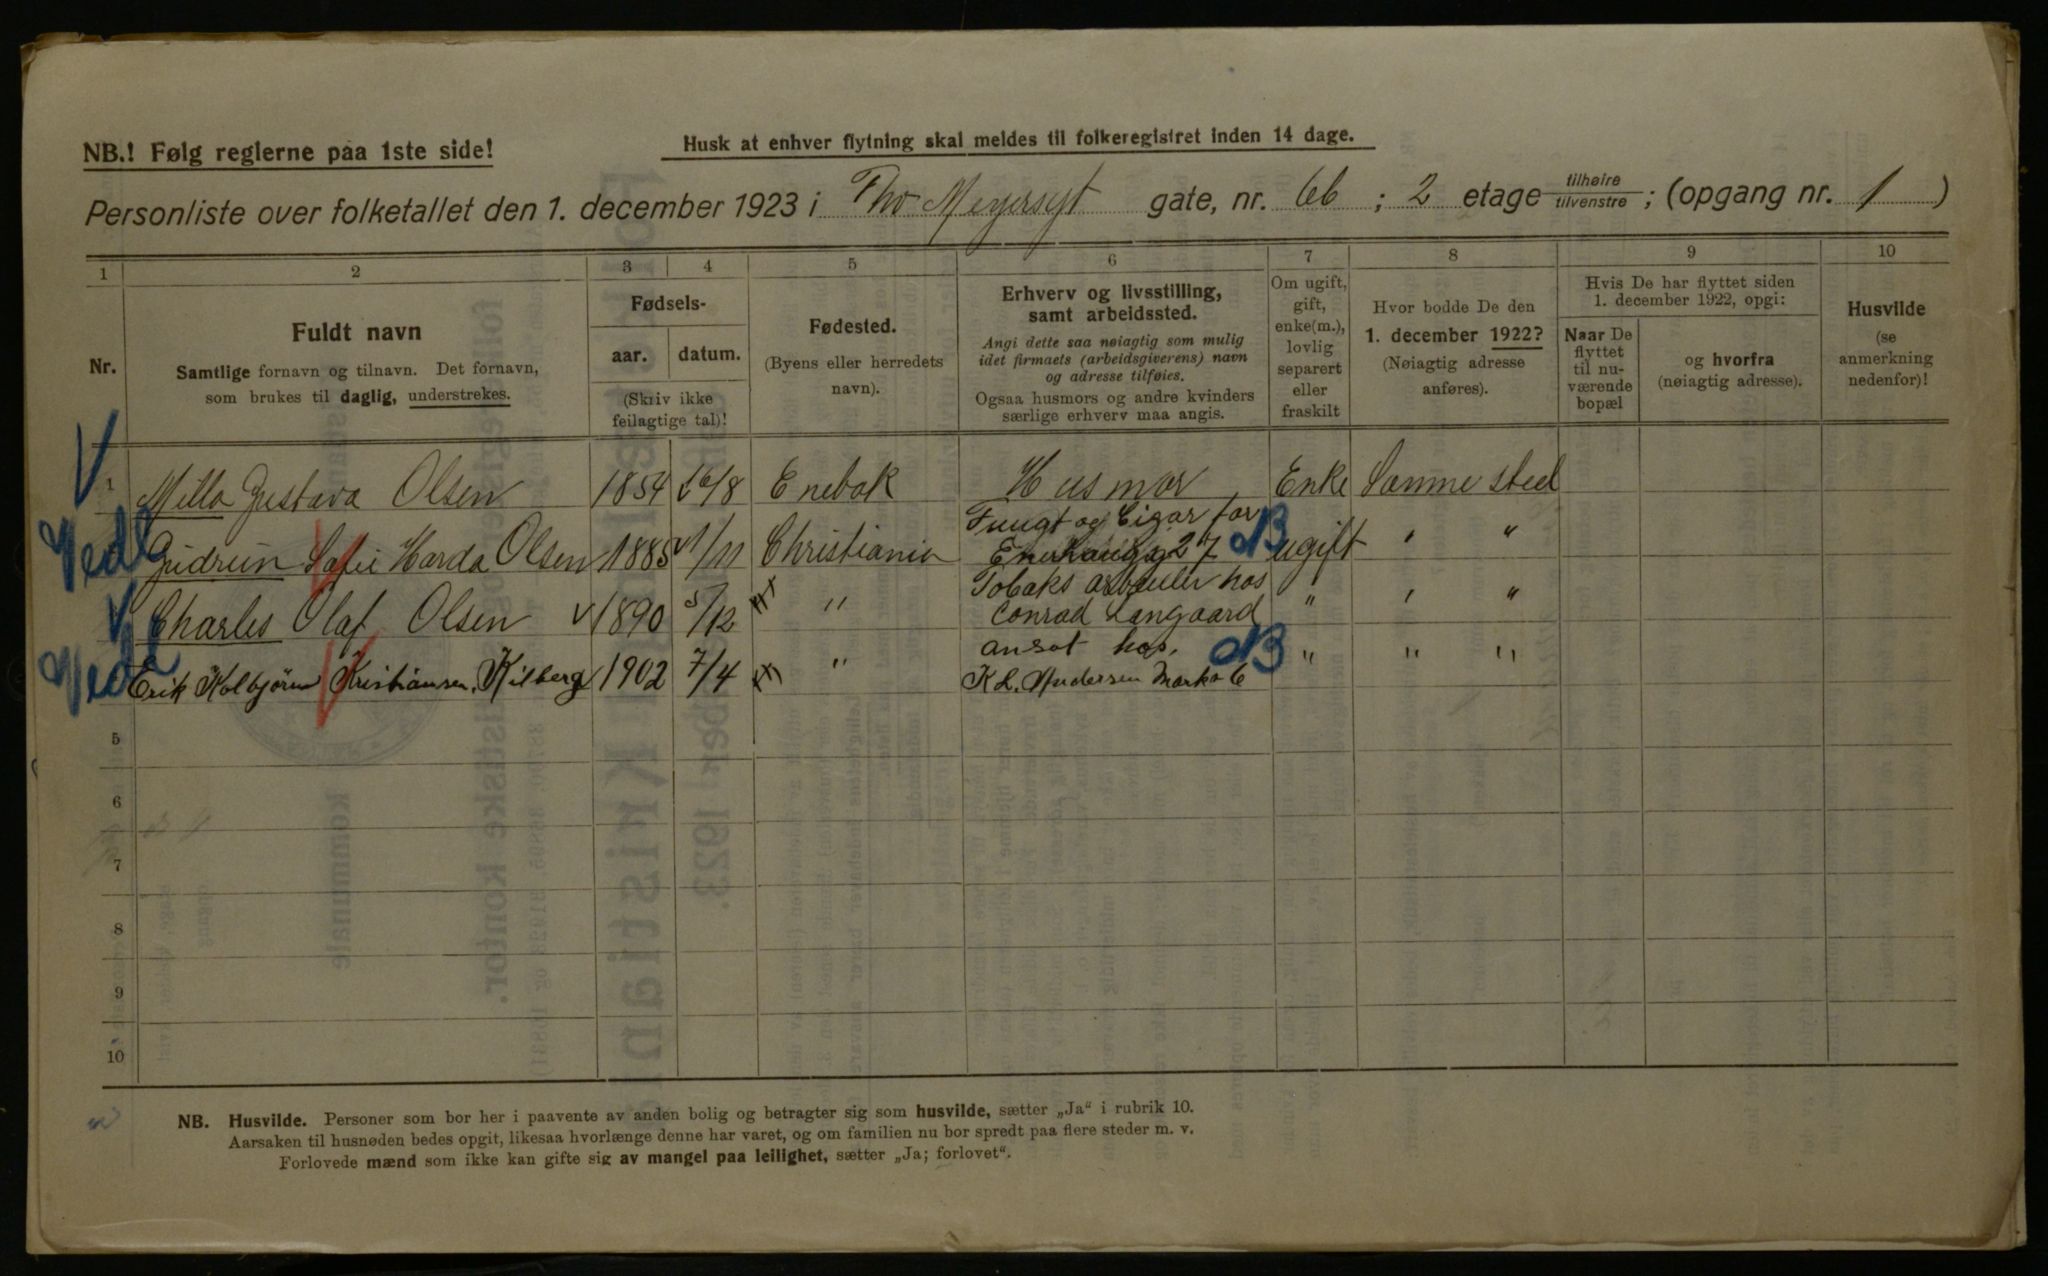 NB.! Følg reglerne paa 1ste side!
Husk at enhver flytning skal meldes til folkeregistret inden 14 dage.
Personliste over folketallet den 1. december 1923 i Tho Meyersgt gate, nr. 66 ; 2 etage tilhøire tilvenstre ; (opgang nr. 1 )
1 2 3 4 5 6 7 8 9 10
Nr.
Fuldt navn
Samtlige fornavn og tilnavn. Det fornavn,
som brukes til daglig, understrekes.
Fødsels-
aar. datum.
(Skriv ikke
feilagtige tal)!
Fødested.
(Byens eller herredets
navn).
Erhverv og livsstilling,
samt arbeidssted.
Angi dette saa nøiagtig som mulig
idet firmaets (arbeidsgiverens) navn
og adresse tilføies.
Ogsaa husmors og andre kvinders
særlige erhverv maa angis.
Om ugift,
gift,
enke(m.),
lovlig
separert
eller
fraskilt
Hvor bodde De den
1. december 1922?
(Nøiagtig adresse
anføres).
Hvis De har flyttet siden
1. december 1922, opgi:
Naar De
flyttet
til nu-
værende
bopæl
og hvorfra
(nøiagtig adresse).
Husvilde
(se
anmerkning
nedenfor)!
1 Milla Gustava Olsen 1854 16/8 Enebak Husmor Enke Samme sted
Gudrun Sofie Olsen 1885 1/11 Christiania Frugt og Cigar for ugift ' "
Charles Olaf Olsen 1890 5/12 " Tobaks arbeider hos " ' "
Conrad Langaard
Erik Kolbjørn Kristiansen, Kilberg 1902 7/4 " ansat hos, " " "
K L. Andersen
5
6
7
8
9
10
NB. Husvilde. Personer som bor her i paavente av anden bolig og betragter sig som husvilde, sætter „Ja“ i rubrik 10.
Aarsaken til husnøden bedes opgit, likesaa hvorlænge denne har varet, og om familien nu bor spredt paa flere steder m. v.
Forlovede mænd som ikke kan gifte sig av mangel paa leilighet, sætter „Ja; forlovet“.